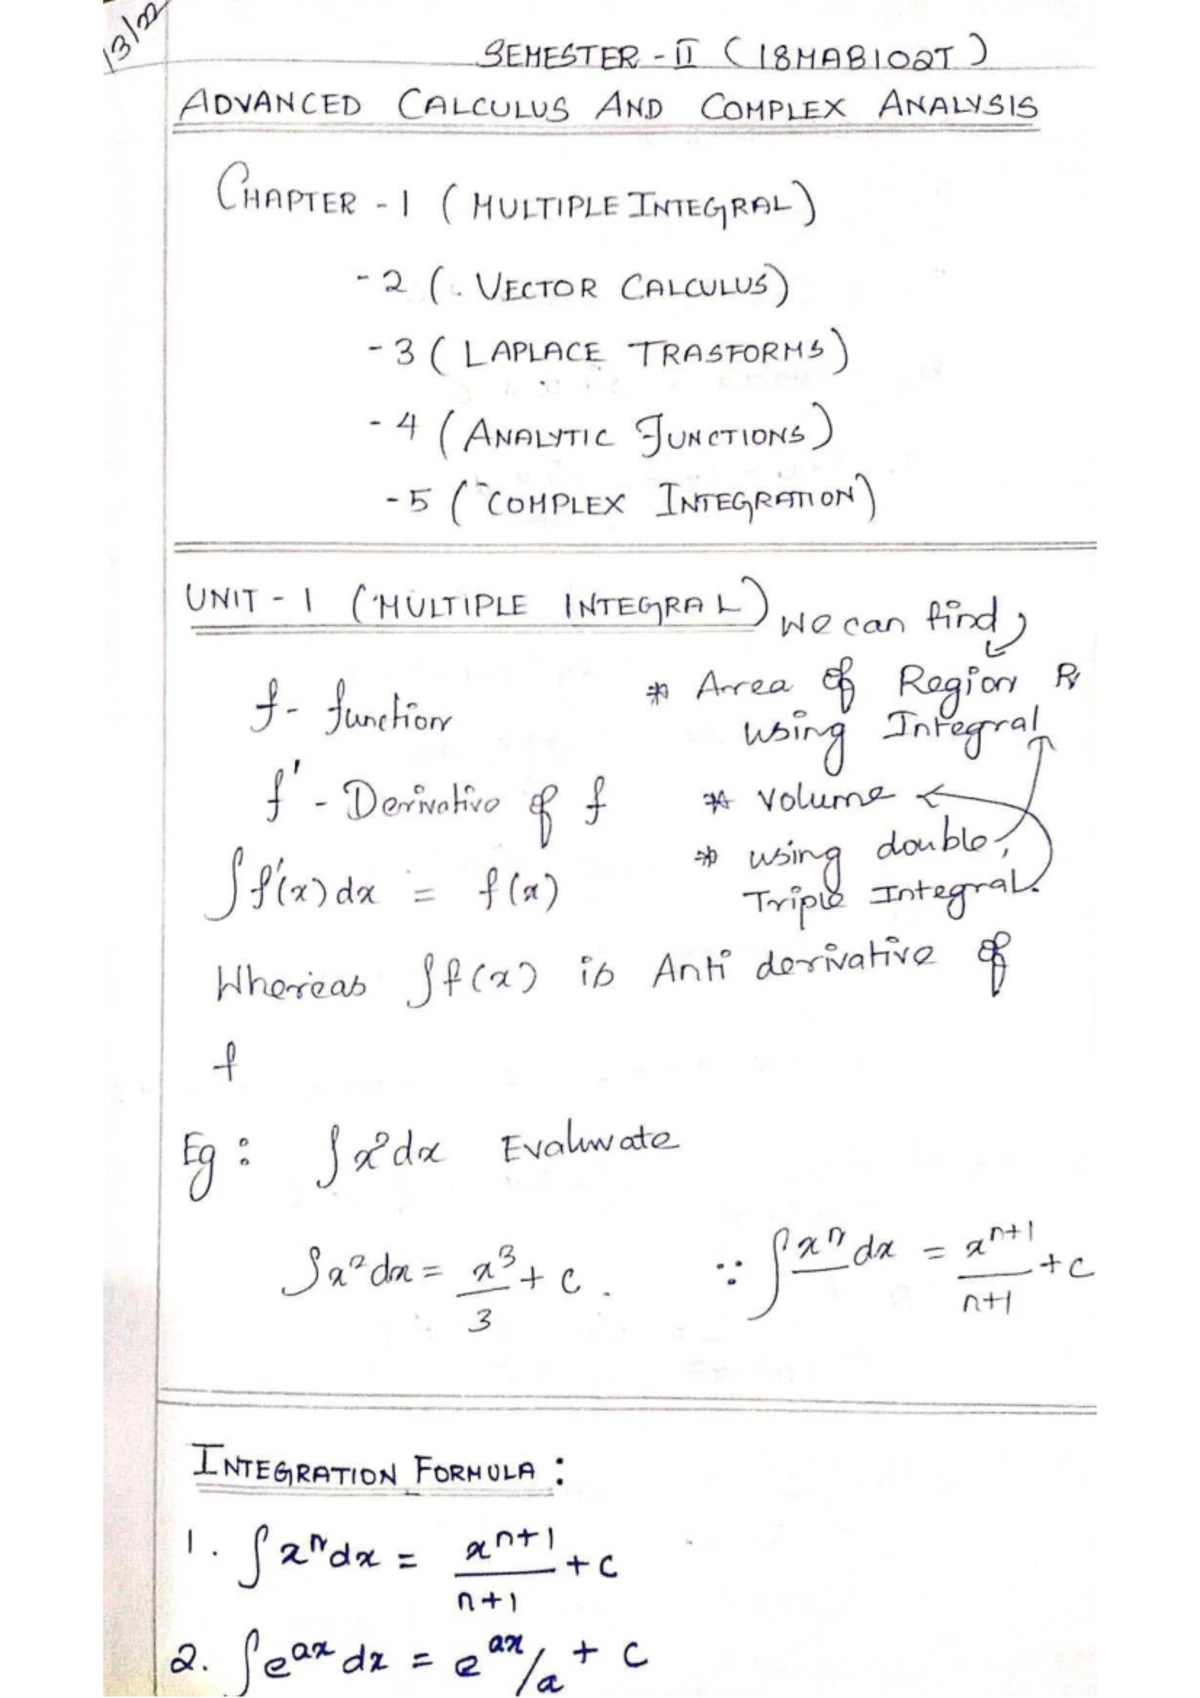 13/22
SEMESTER - II (18MAB102T)
ADVANCED CALCULUS AND COMPLEX ANALYSIS
CHAPTER - 1 (MULTIPLE INTEGRAL)
- 2 (. VECTOR CALCULUS)
- 3 (LAPLACE TRASFORMS)
- 4 (ANALYTIC FUNCTIONS)
- 5 (COMPLEX INTEGRATION)
UNIT - 1 (MULTIPLE INTEGRAL)
We can find
* Area of Region R
using Integral
* Volume
* using double,
Triple Integral.
f - function
f' - Derivative of f
∫f'(x) dx = f(x)
Whereas ∫f(x) is Anti derivative of
f
Eg : ∫x² dx Evaluate
∫x² dx = x³/3 + c . ∵ ∫xⁿ dx = xⁿ⁺¹/n+1 + c
INTEGRATION FORMULA :
1. ∫xⁿ dx = xⁿ⁺¹/n+1 + c
2. ∫eᵃˣ dx = eᵃˣ/a + c